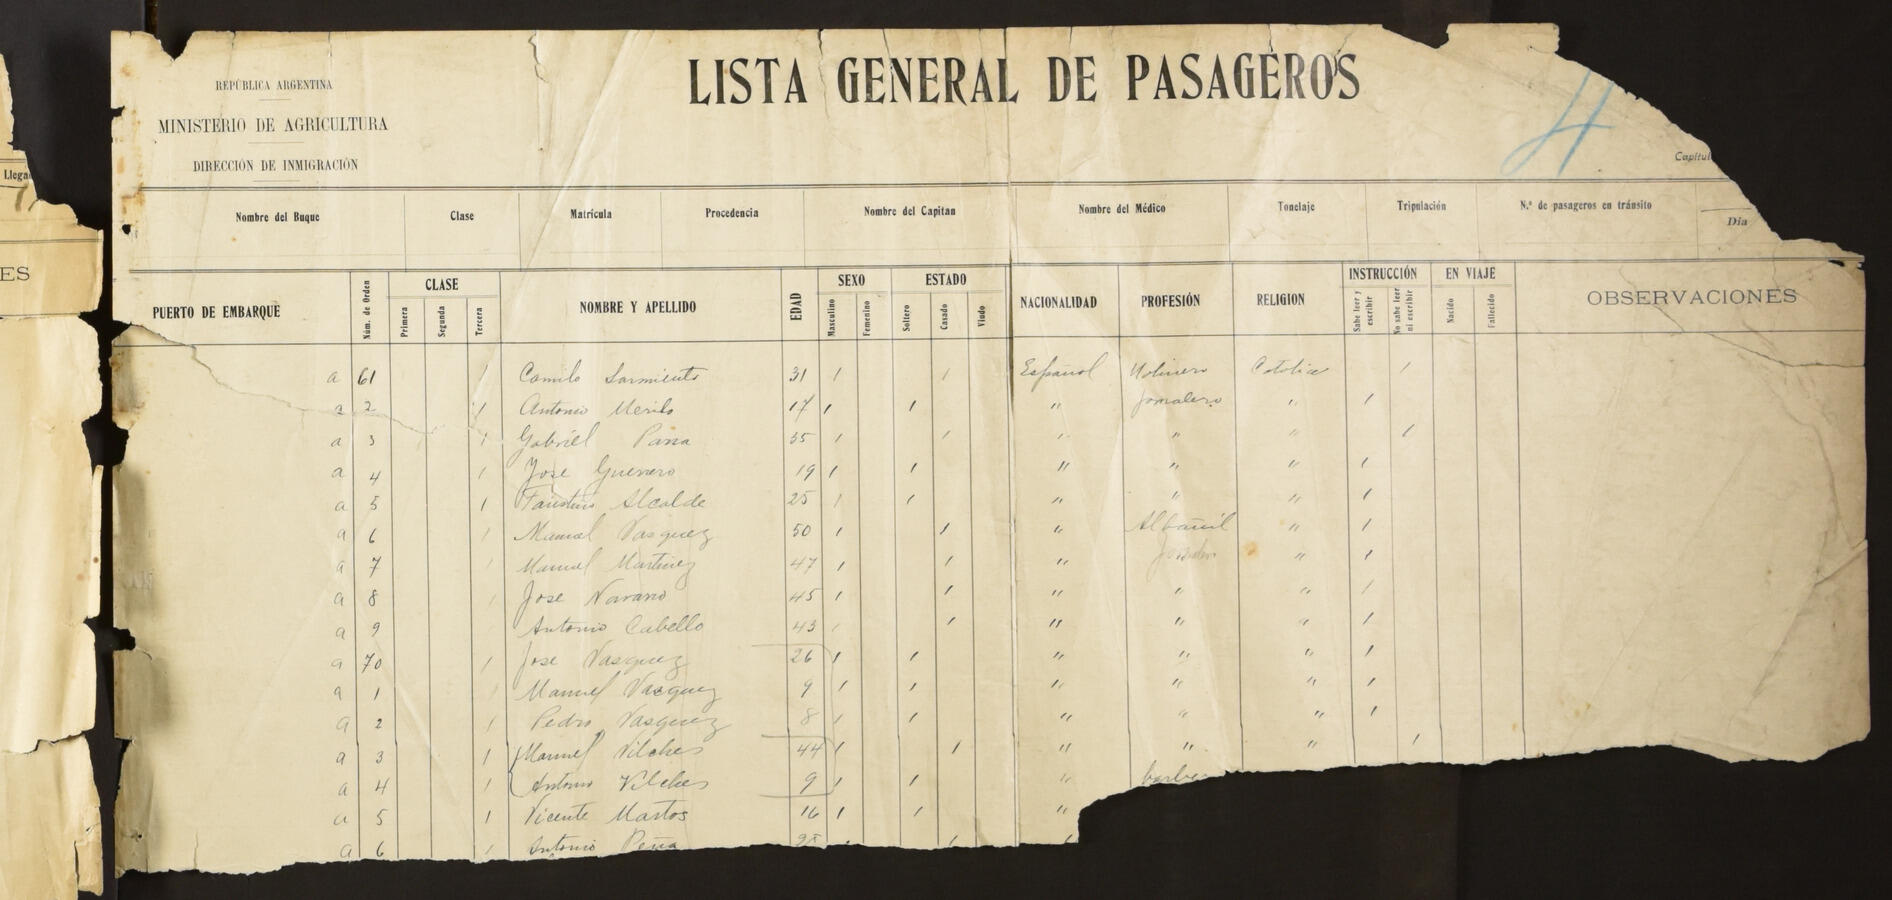 Llega
ES
REPÚBLICA ARGENTINA
MINISTERIO DE AGRICULTURA
DIRECCIÓN DE INMIGRACIÓN
LISTA GENERAL DE PASAGEROS
4
Capitul
Nombre del Buque Clase Matrícula Procedencia Nombre del Capitan Nombre del Médico Tonelaje Tripulación N.º de pasageros en tránsito Dia
PUERTO DE EMBARQUE Núm. de Orden CLASE Primera Segunda Tercera NOMBRE Y APELLIDO EDAD SEXO Masculino Femenino ESTADO Soltero Casado Viudo NACIONALIDAD PROFESIÓN RELIGION INSTRUCCIÓN Sabe leer y escribir No sabe leer ni escribir EN VIAJE Nacido Fallecido OBSERVACIONES
a 61 / Camilo Sarmiento 31 / / Español Molinero Catolica /
a 2 / Antonio 17 / / " Jornalero " /
a 3 / Gabriel 35 / / " " " /
a 4 / Jose Guerrero 19 / / " " " /
a 5 / Faustino Alcalde 25 / / " " " /
a 6 / Manuel Vasquez 50 / / " Albañil " /
a 7 / Manuel Martinez 47 / / " Jornalero " /
a 8 / Jose Navarro 45 / / " " " /
a 9 / Antonio Cabello 43 / / " " " /
a 70 / Jose Vasquez 26 / / " " " /
a 1 / Manuel Vasquez 9 / / " " " /
a 2 / Pedro Vasquez 8 / / " " " /
a 3 / Manuel Vilches 44 / / " " " /
a 4 / Antonio Vilches 9 / / " barbe
a 5 / Vicente Martos 16 / / "
a 6 / Antonio Peña / /